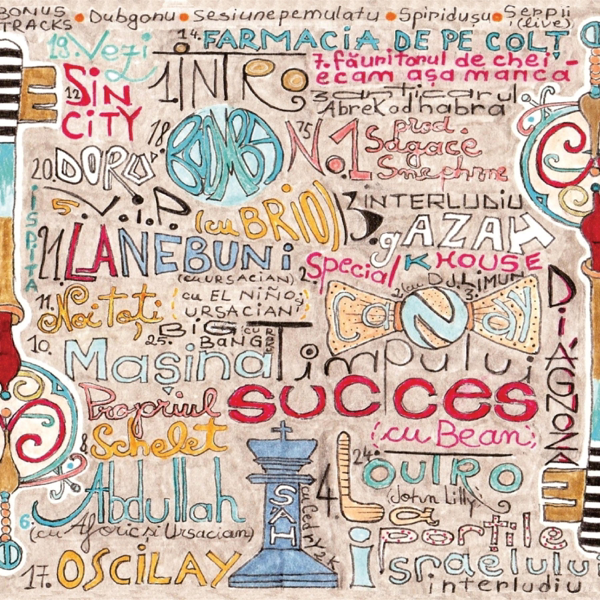 BONUS TRACKS • Dubgonu • Sesiunepemulatu • Spiridușu • Serpii (live)
19. Vezi
14. FARMACIA DE PE COLȚ
7. făuritorul de chei -
ecam așa manca
12. SiN CiTY
1. iNTRO
3 anticarul
AbreKadhabra
18. BOMBA
15. No.1
prod. Sagace
Smephine
20. DORU'
5. V.I.P. (cu BRIO)
13. iNTERLUDiU
9. GAZAH
iSPiTA
21. LANEBUNi
(cu URSACiAN)
2. Special K HOUSE
(cu DJ. LiMUN)
Candy
11. Noi toți
(cu EL NiÑO și URSACiAN)
25. BiG BANG
DiAGNOZA
10. Mașina Timpului
Propriul SUCCES
(cu Bean)
8. Schelet
24. OUTRO
(John Lilly)
6. Abdullah
(cu Aforic si Ursacian)
ȘAH
4. La porțile israelului
interludiu
17. OSCiLAY